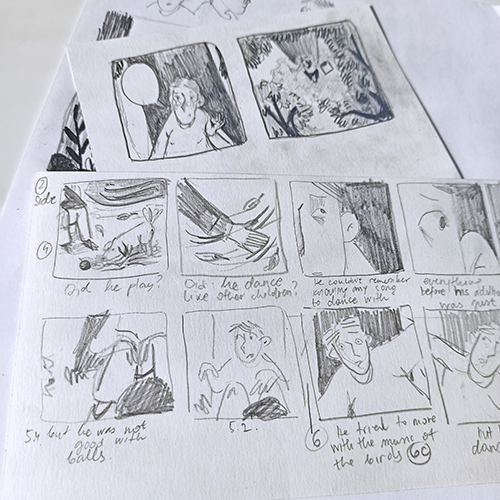 2
side
4
Did he play?
Did he dance
like other children?
He couldn't remember
knowing any song
to dance with.
everything
before his
was just
5.1 but he was not
good with
balls.
5.2.
6 He tried to move
with the music of
the birds 6C
but
danc